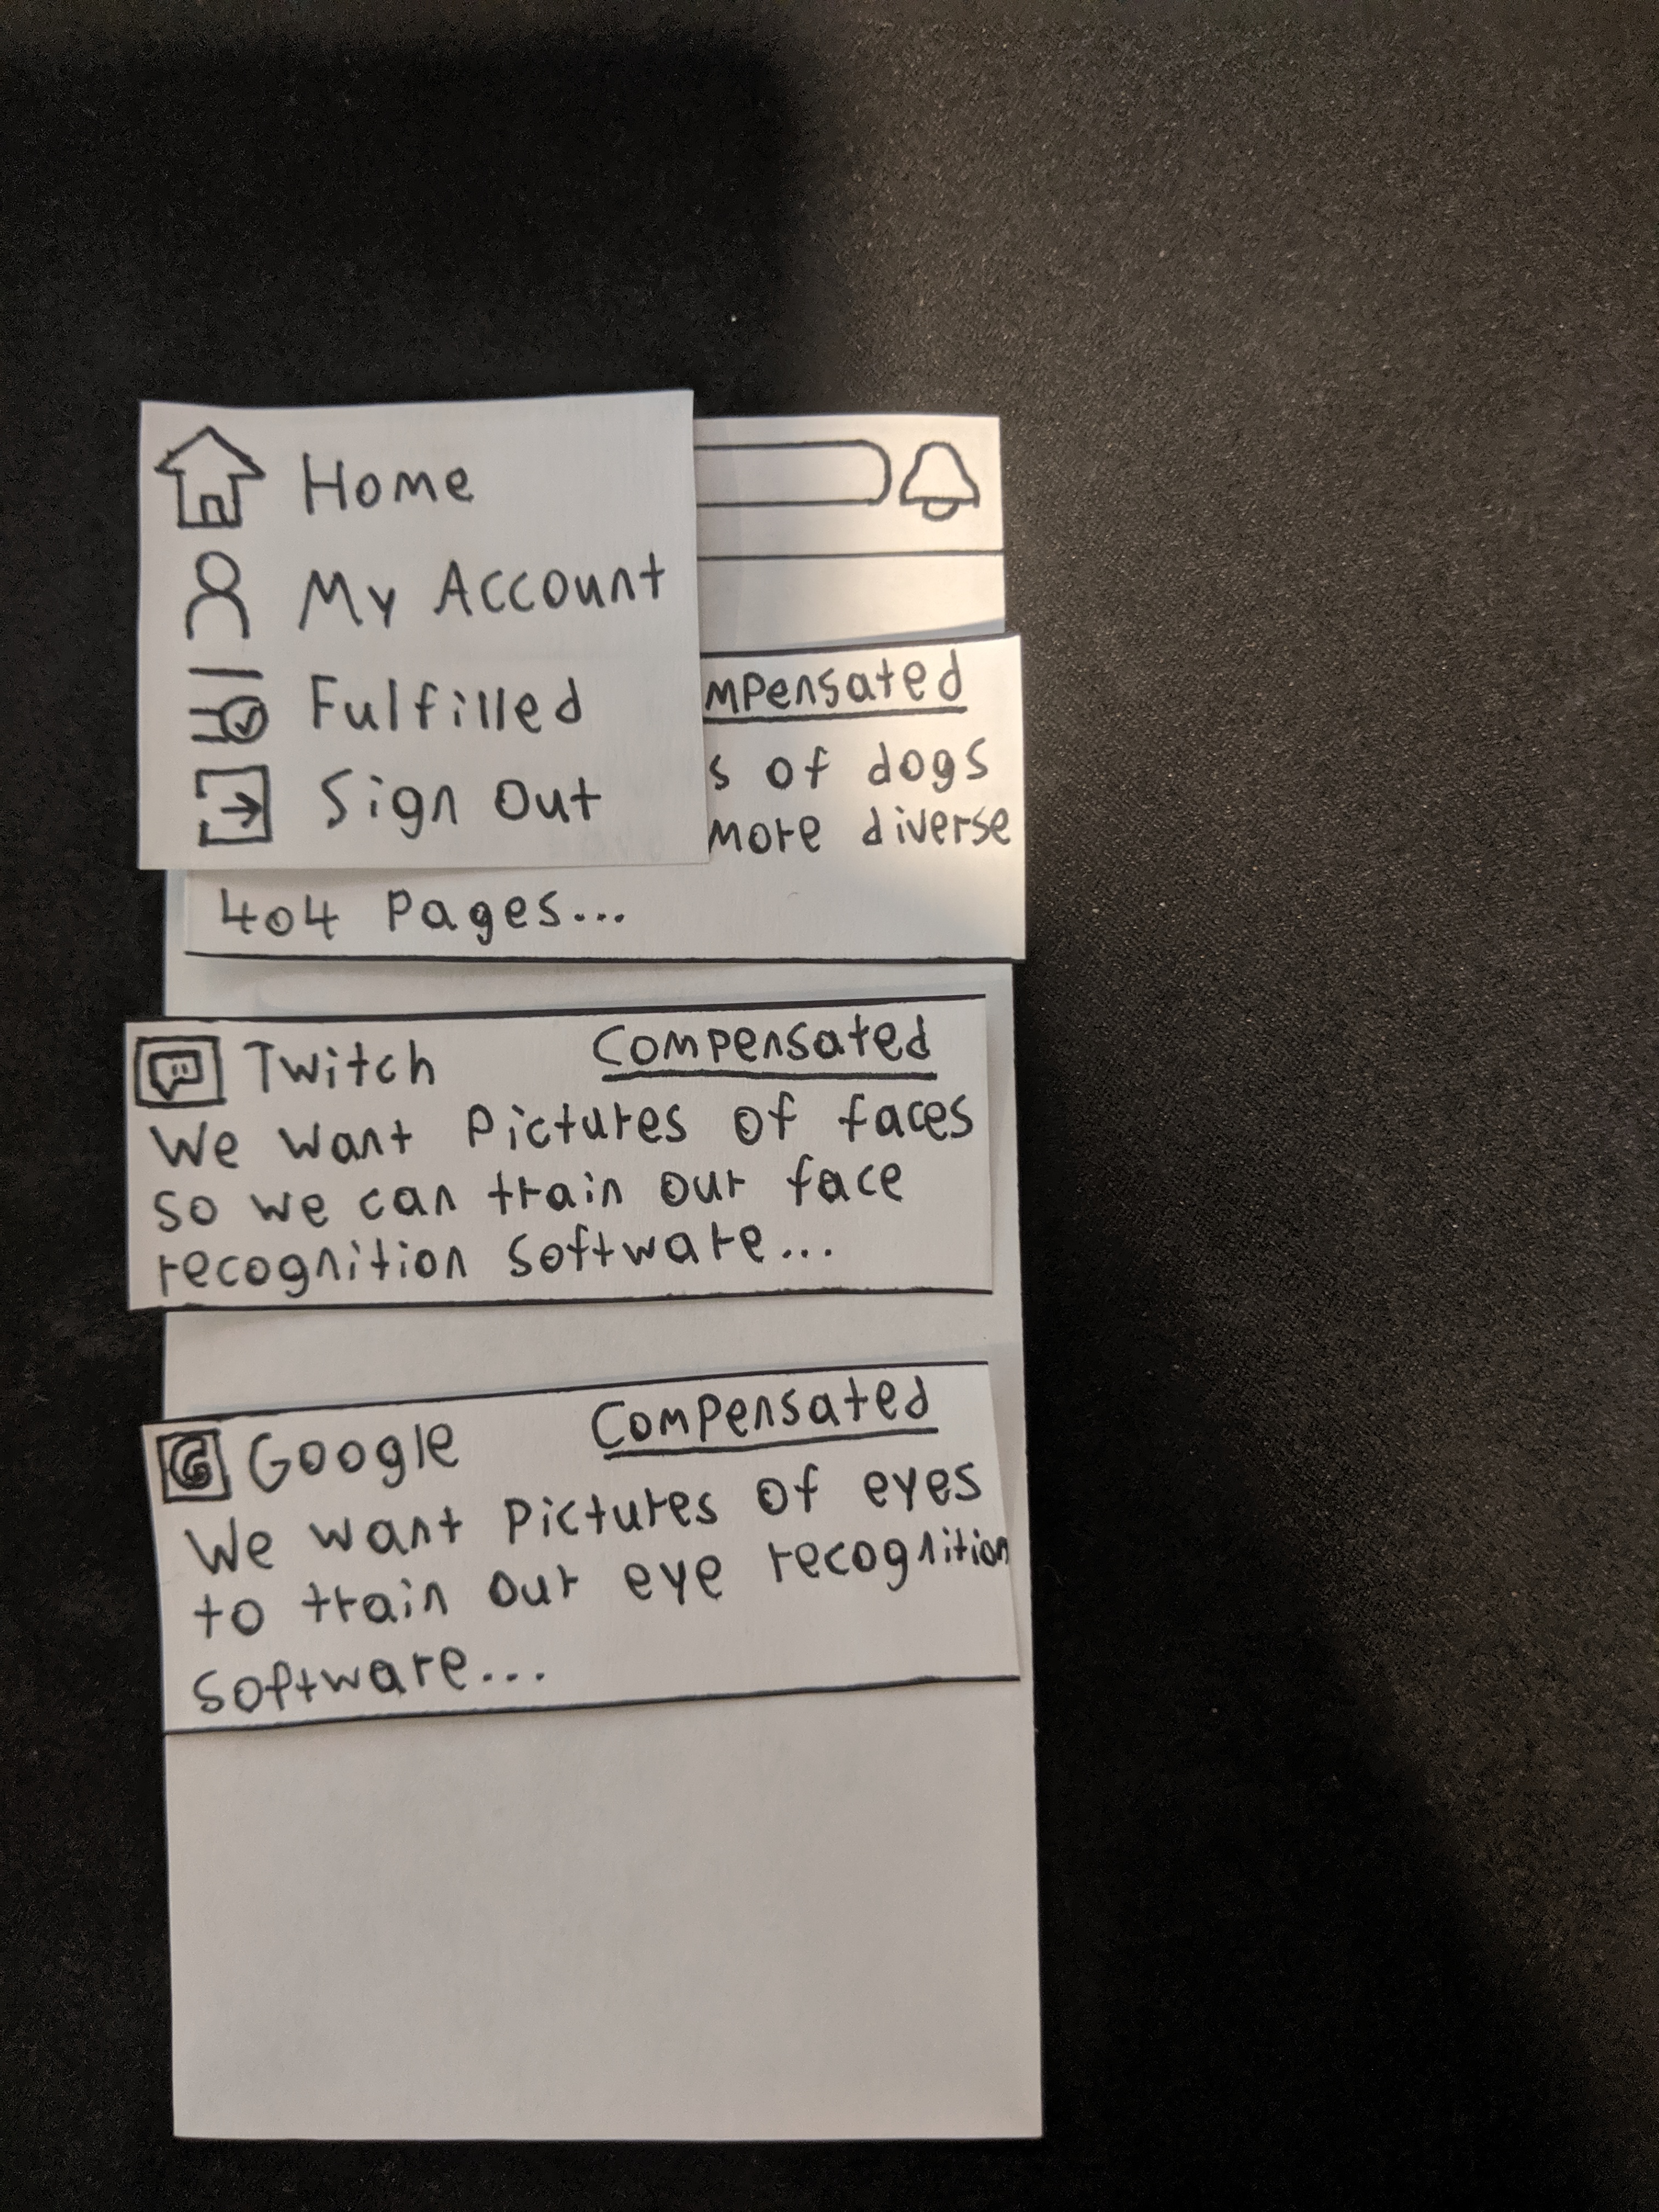 Home
My Account
Fulfilled
Sign Out
mpensated
s of dogs
more diverse
404 Pages...
Twitch Compensated
We want Pictures of faces
so we can train our face
recognition software...
G Google Compensated
We want Pictures of eyes
to train our eye recognition
software...